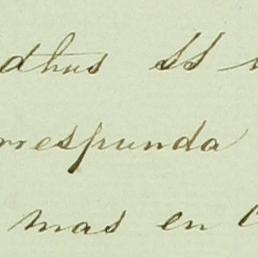 dhus SS
rrespunda
mas en